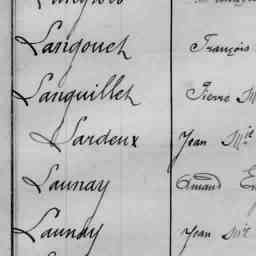 Langouet François
Languillet Pierre M
Lardeux Jean Mie
Launay Amand
Launay Jean Mie